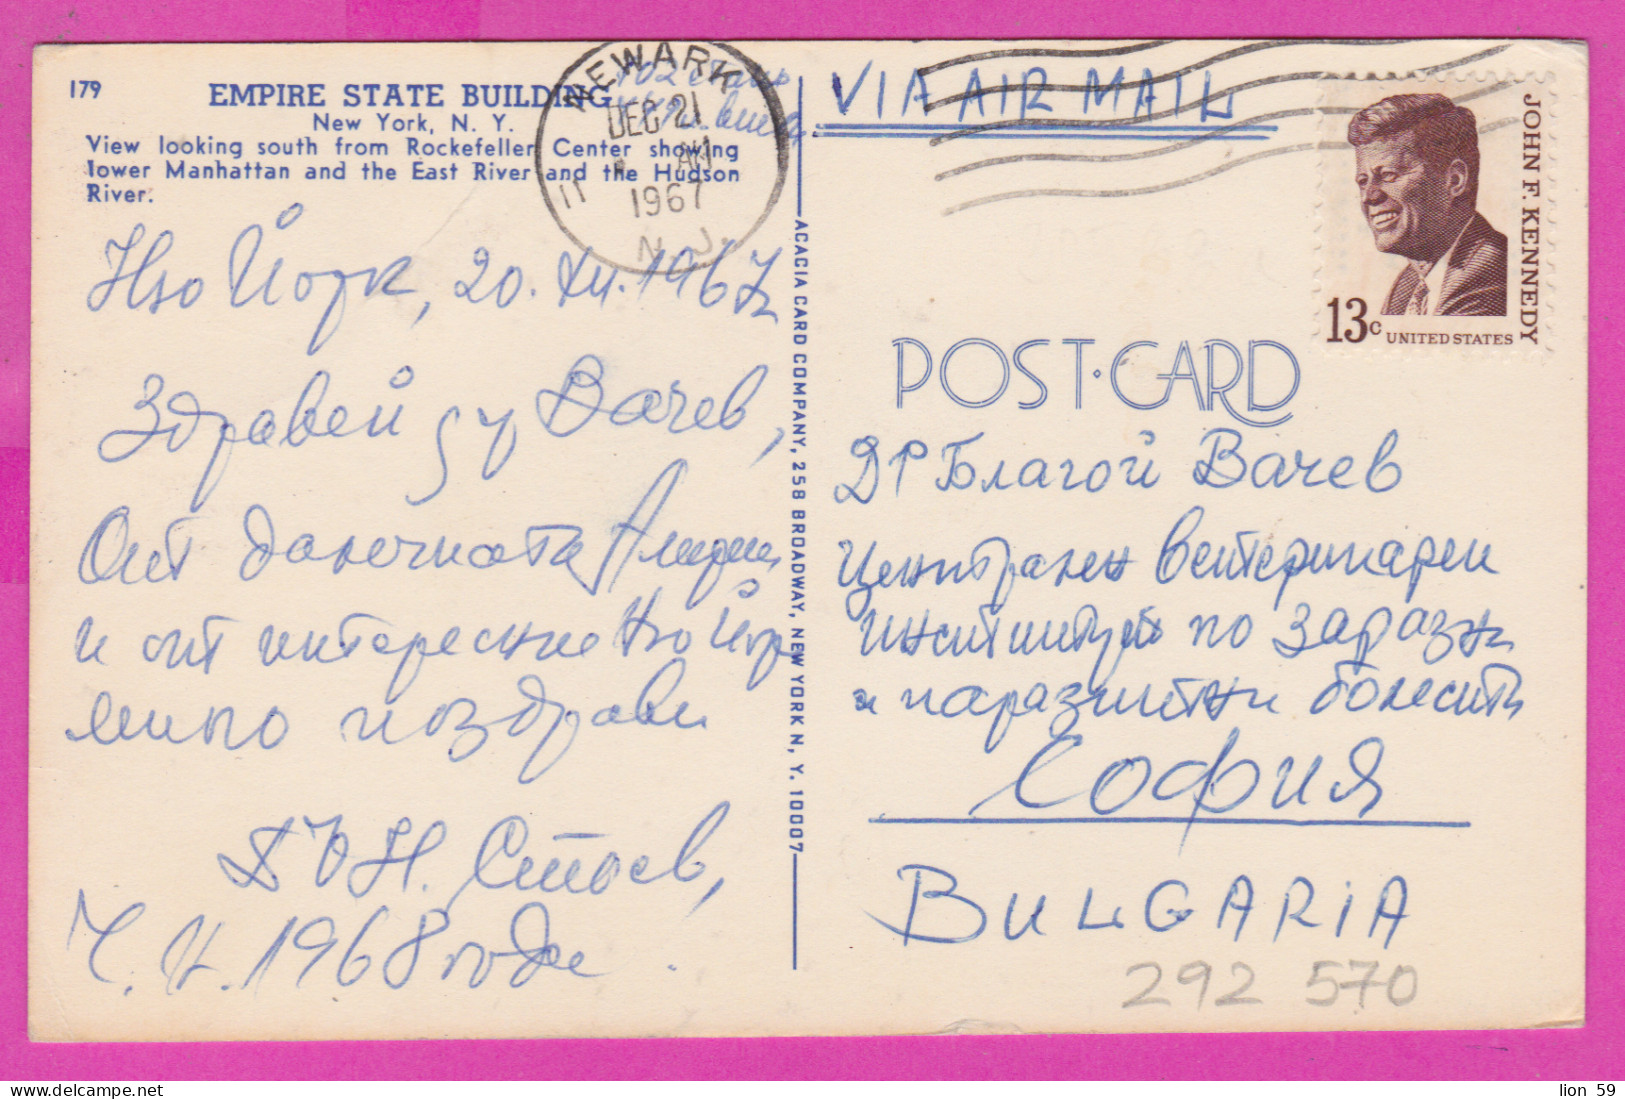 179
EMPIRE STATE BUILDING
New York, N. Y.
View looking south from Rockefeller Center showing
lower Manhattan and the East River and the Hudson
River.
102 етажа
NEWARK
DEC 21
AM
1967
N. J.
Ню Йорк, 20.XII.1967г
Здравей Вачев,
От далечната Америка
и от интересния Ню Йорк
много поздрави
Н. Стоев,
Ч. Н. 1968 година.
ACACIA CARD COMPANY, 258 BROADWAY, NEW YORK N, Y. 10007
VIA AIR MAIL
JOHN F. KENNEDY
13c UNITED STATES
POST·CARD
Д-Р Благой Вачев
Централен ветеринарен
институт по заразни
и паразитни болести
София
BULGARIA
292 570
lion 59